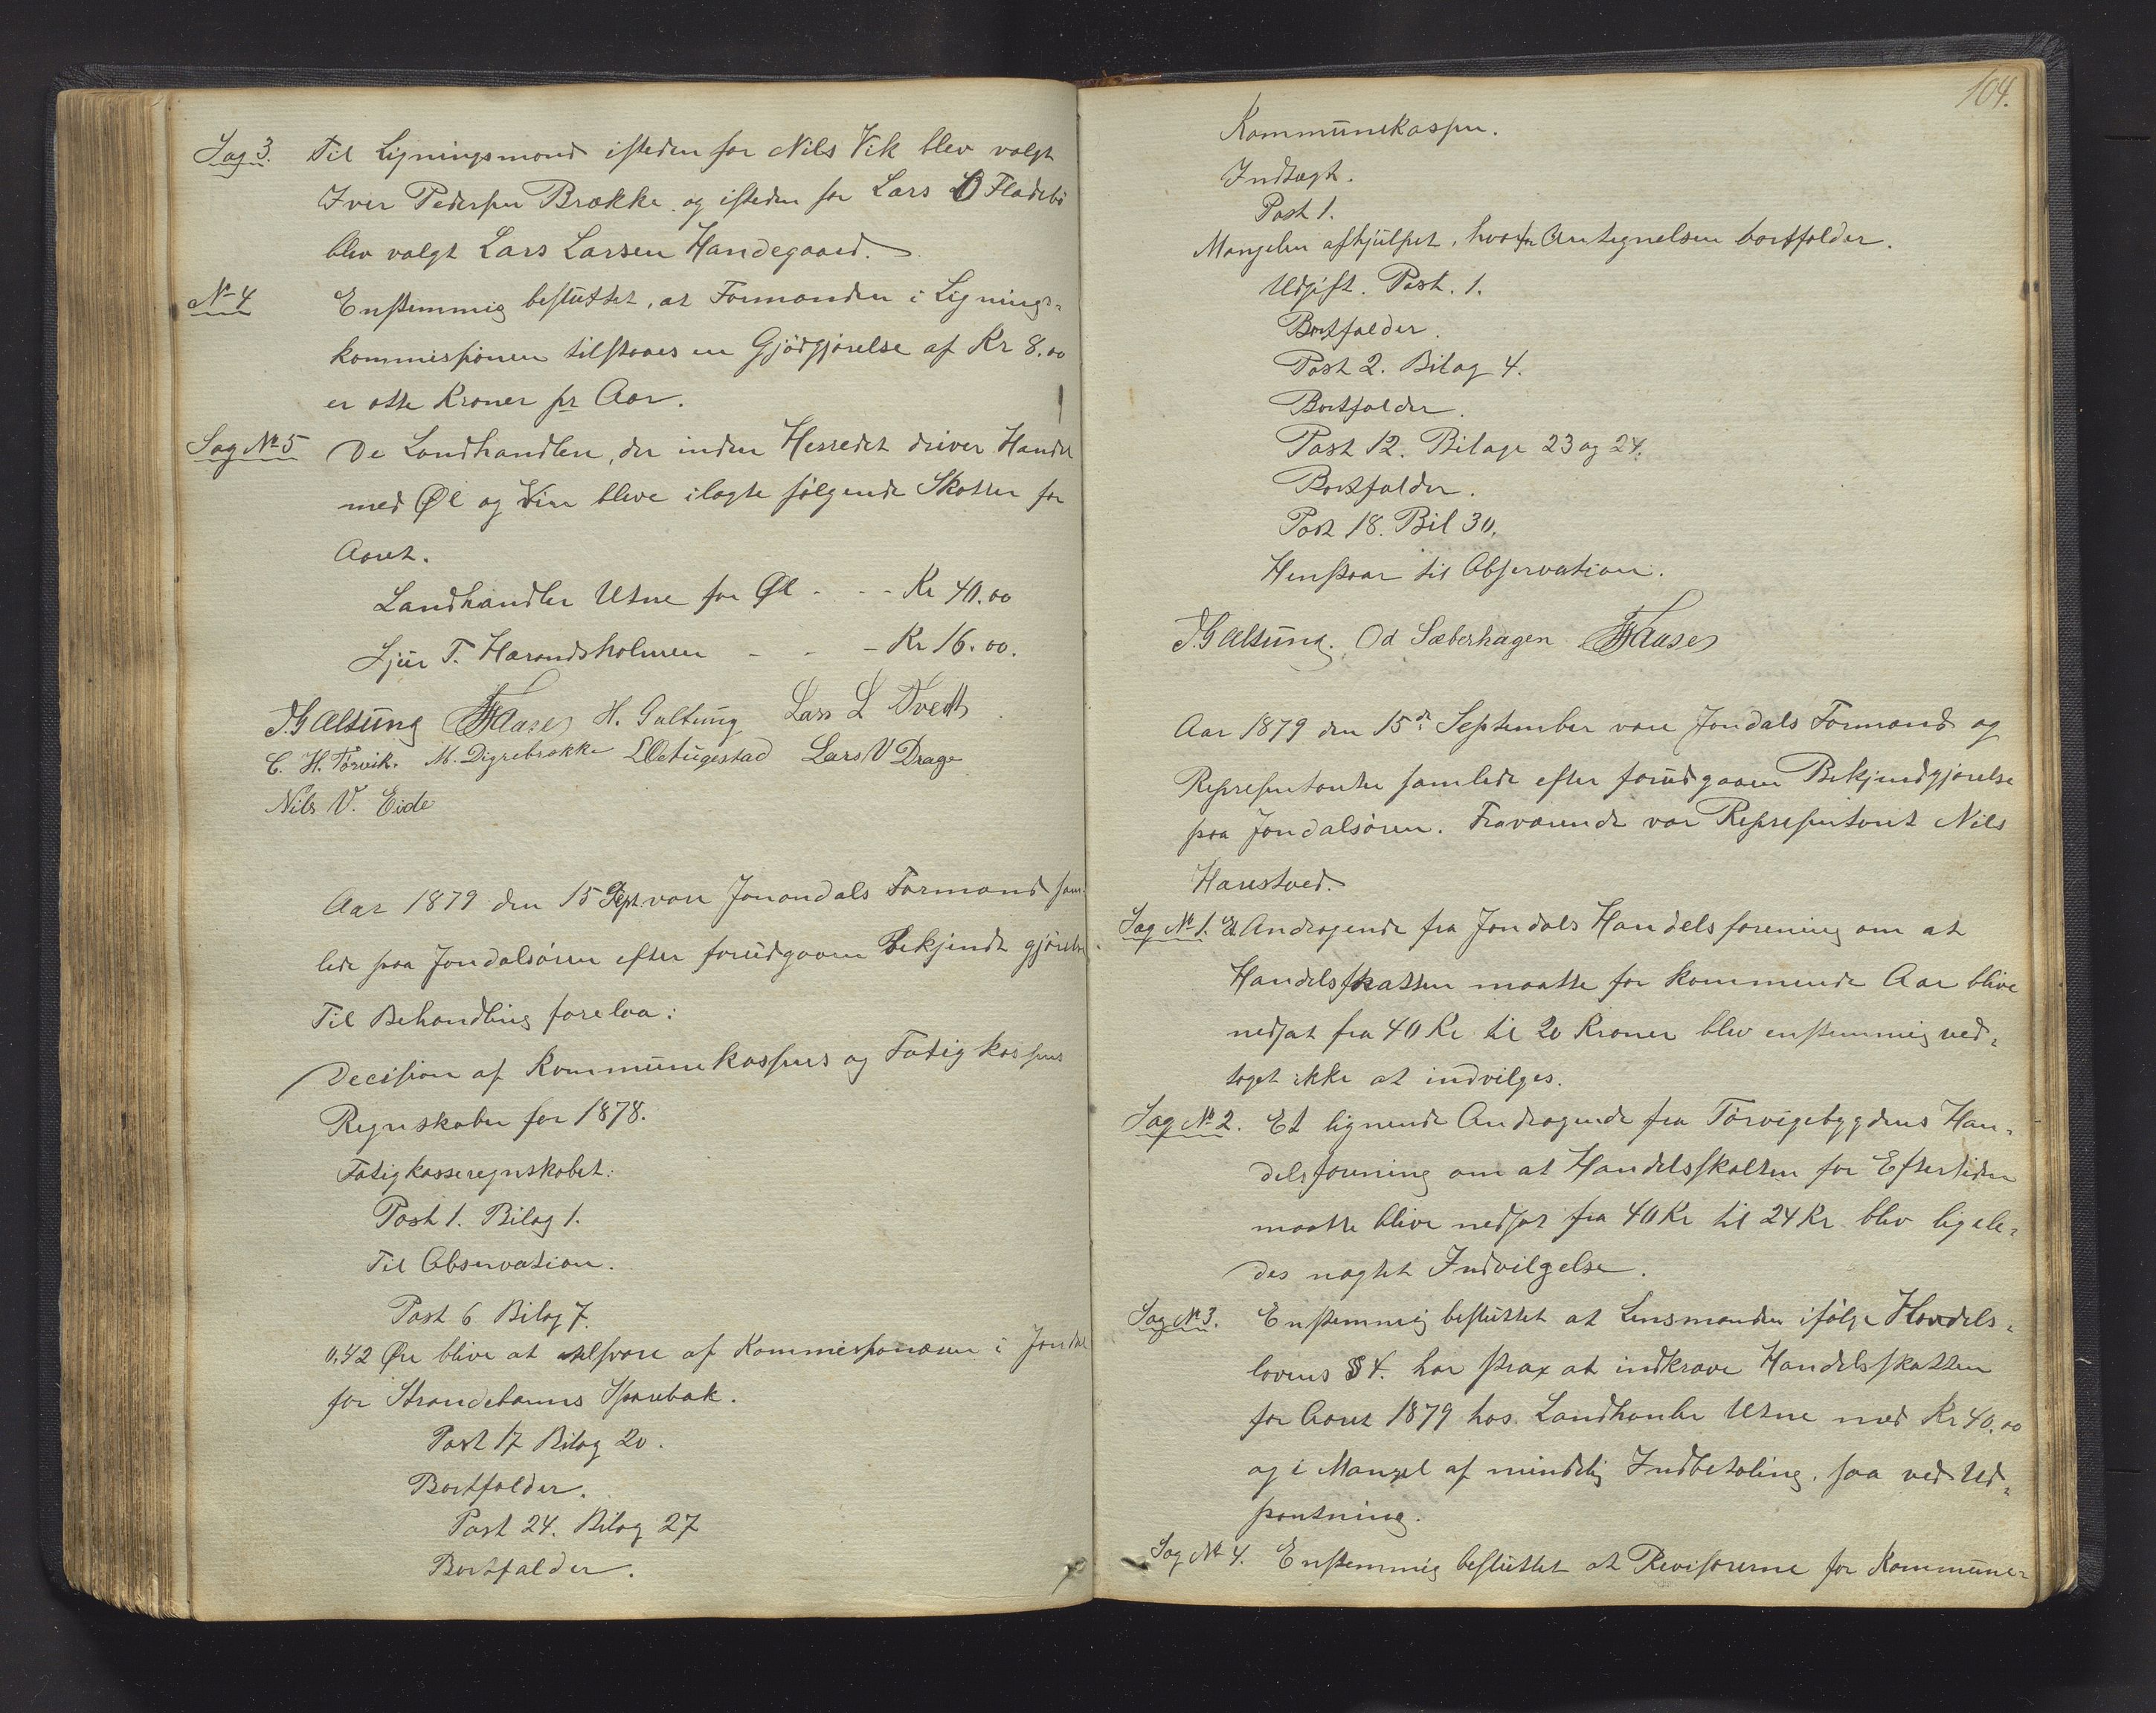 Sag 3. Til Ligningsmænd isteden for Nils Vik blev valgt
Iver Pedersen Brække og isteden for Lars O Fladebö
blev valgt Lars Larsen Handegaard.
No 4 Enstemmig besluttet, at Formanden i Lignings-
kommissionen tilstaaes en Gjödgjörelse af Kr 8.00
er otte Kroner pr Aar.
Sag No 5 De Landhandlere, der inden Herredet driver Handel
med Øl og Vin bleve ilagte følgende Skatter for
Aaret.
Landhandler Utne for Øl - - - Kr 40.00
Sjur T. Herandsholmen - - - Kr 16.00.
T. Galtung FHause H. Galtung Lars L Tvedt
C. H. Törvik. M. Digrebrække Lars V Drage
Nils V. Eide
Aar 1879 den 15 Sept. vare Jonondals Formænd sam-
lede paa Jondalsören efter forudgaaen Bekjendt gjörelse.
Til Behandling forelaa:
Decision af Kommunekassens og Fatigkassens
Regnskaber for 1878.
Fatigkasseregnskabet:
Post 1. Bilag 1.
Til Observation.
Post 6 Bilag 7.
0,42 Øre blive at tilsvare af Kommissionæren i Jondal
for Strandebarms Sparebak.
Post 17 Bilag 20.
Bortfalder.
Post 24. Bilag 27
Bortfalder.
104.
Kommunekassen.
Indtægt.
Post 1.
Mangelen afhjulpet, hvorfor Antegnelsen bortfalder.
Udgift. Post. 1.
Bortfalder.
Post 2. Bilag 4.
Bortfalder.
Post 12. Bilage 23 og 24.
Bortfalder.
Post 18. Bil 30.
Henstaar til Observation.
T. Galtung. Od Sæberhagen FHause
Aar 1879 den 15de September vare Jondals Formænd og
Repræsentanter samlede efter forudgaaen Bekjendgjörelse
paa Jondalsören. Fraværende var Repræsentant Nils
Harestved.
Sag No 1. Et Andragende fra Jondals Handelsforening om at
Handelsskatten maatte for kommende Aar blive
nedsat fra 40 Kr til 20 Kroner blev enstemmig ved-
taget ikke at indvilges.
Sag No 2. Et lignende Andragende fra Törvigebygdens Han-
delsforening om at Handelsskatten for Eftertiden
maatte blive nedsat fra 40 Kr til 24 Kr blev ligele-
des nægtet Indvilgelse.
Sag No 3. Enstemmig besluttet at Lensmanden ifölge Handels-
lovens § 4. har strax at indkræve Handelsskatten
for Aaret 1879 hos Landhanler Utne med Kr 40.00
og i Mangel af mindelig Indbetaling, saa ved Ud-
pantning.
Sag No 4. Enstemmig besluttet at Revisorerne for Kommune-